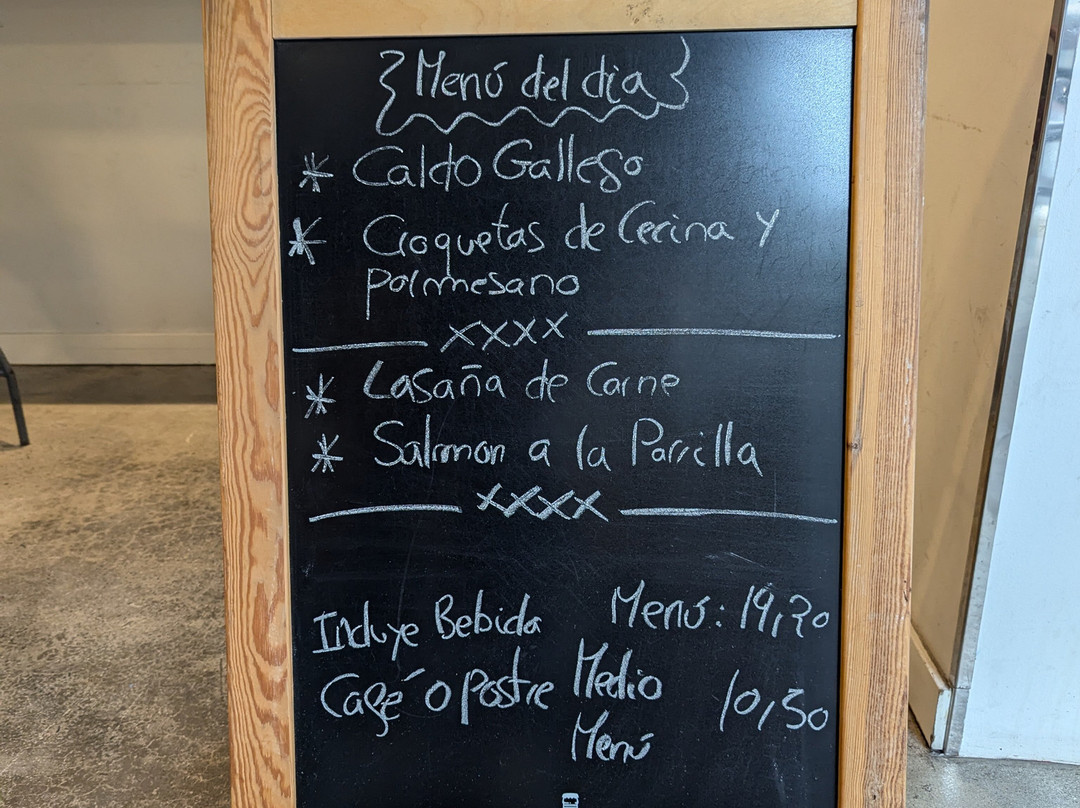 Menú del día
* Caldo Gallego
* Croquetas de Cecina y
parmesano
xxxx
* Lasaña de Carne
* Salmon a la Parrilla
xxxx
Incluye Bebida
Café o Postre
Menú:
Medio
Menú
10,50